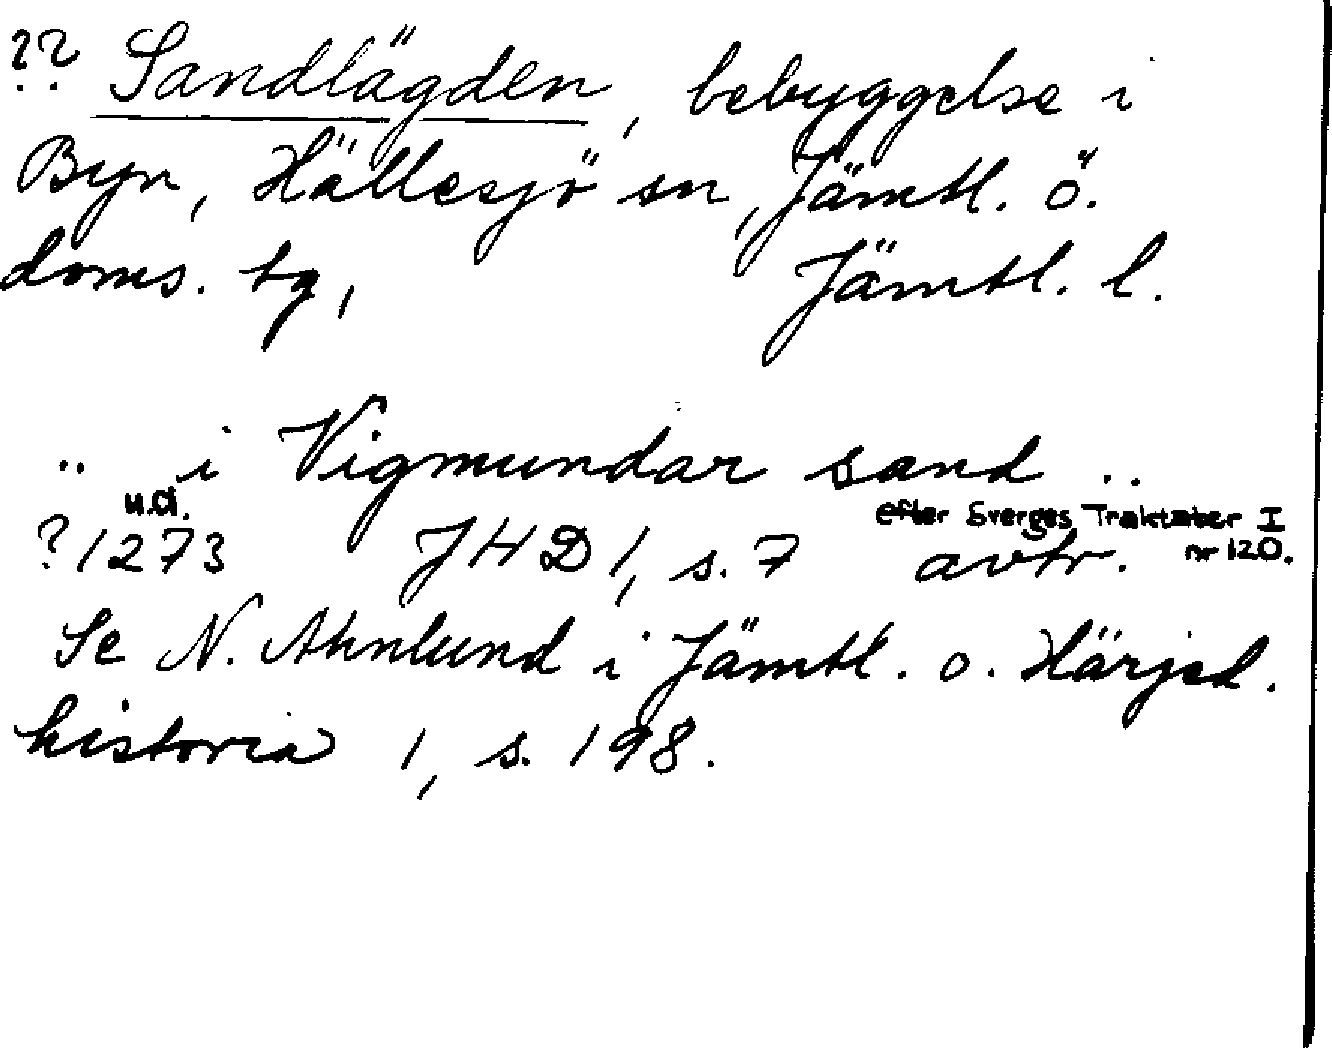 ?? Sandlägden, bebyggelse i
Byn, Hällesjö sn, Jämtl. ö.
doms. tg, Jämtl. l.
.. i Vigmundar sand ..
u.d. efter Sverges Traktater I
?1273 JHD 1, s. 7 avtr. nr 120.
Se N. Ahnlund i Jämtl. o. Härjed.
historia 1, s. 198.